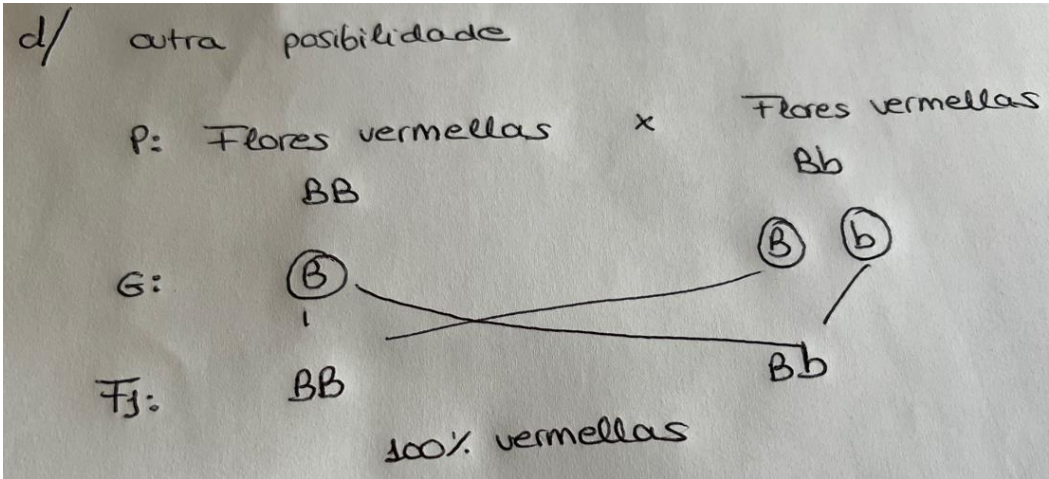 d/ outra posibilidade
P: Flores vermellas x Flores vermellas
BB Bb
G: B B b
F1: BB Bb
100% vermellas